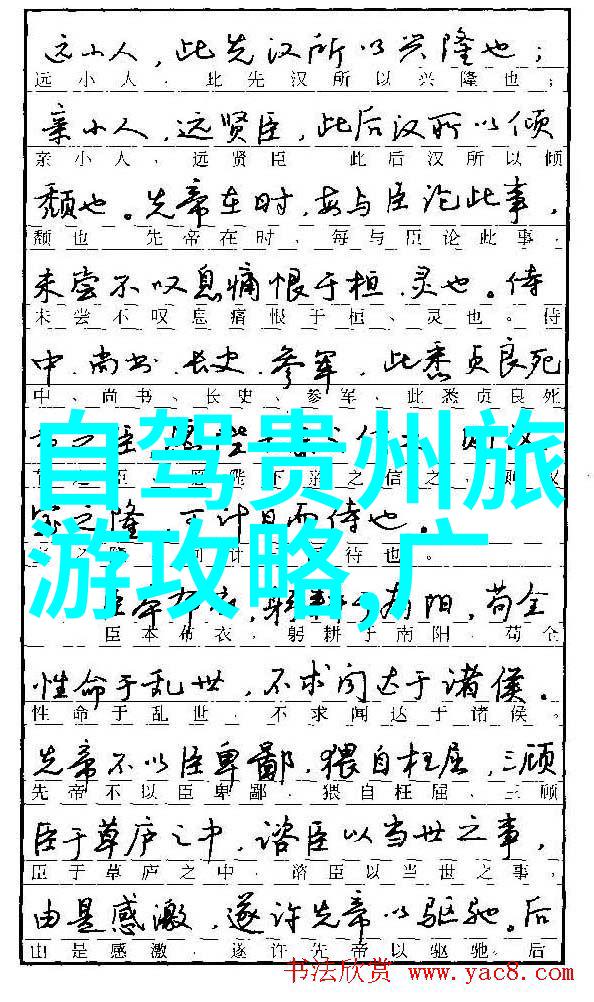 远小人，此先汉所以兴隆也；
远小人，此先汉所以兴隆也；
亲小人，远贤臣，此后汉所以倾
亲小人，远贤臣 此后汉所以倾
颓也。先帝在时，每与臣论此事，
颓也 先帝在时，每与臣论此事，
未尝不叹息痛恨于桓、灵也。侍
未尝不叹息痛恨于桓、灵也。侍
中、尚书、长史、参军，此悉贞良死
中、尚书、长史、参军，此悉贞良死
自驾贵州旅
游攻略,广
之隆，可计日而待也。
臣本布衣，躬耕于南阳，苟全
臣本布衣，躬耕于南阳，苟全
性命于乱世，不求闻达于诸侯。
性命于乱世，不求闻达于诸侯。
先帝不以臣卑鄙，猥自枉屈，三顾
先帝不以臣卑鄙，猥自枉屈、三顾
臣于草庐之中，谘臣以当世之事，
臣于草庐之中，谘臣以当世之事，
由是感激，遂许先帝以驱驰。后
由是感激，遂许先帝以驱驰。后
书法欣赏 www.yac8.com